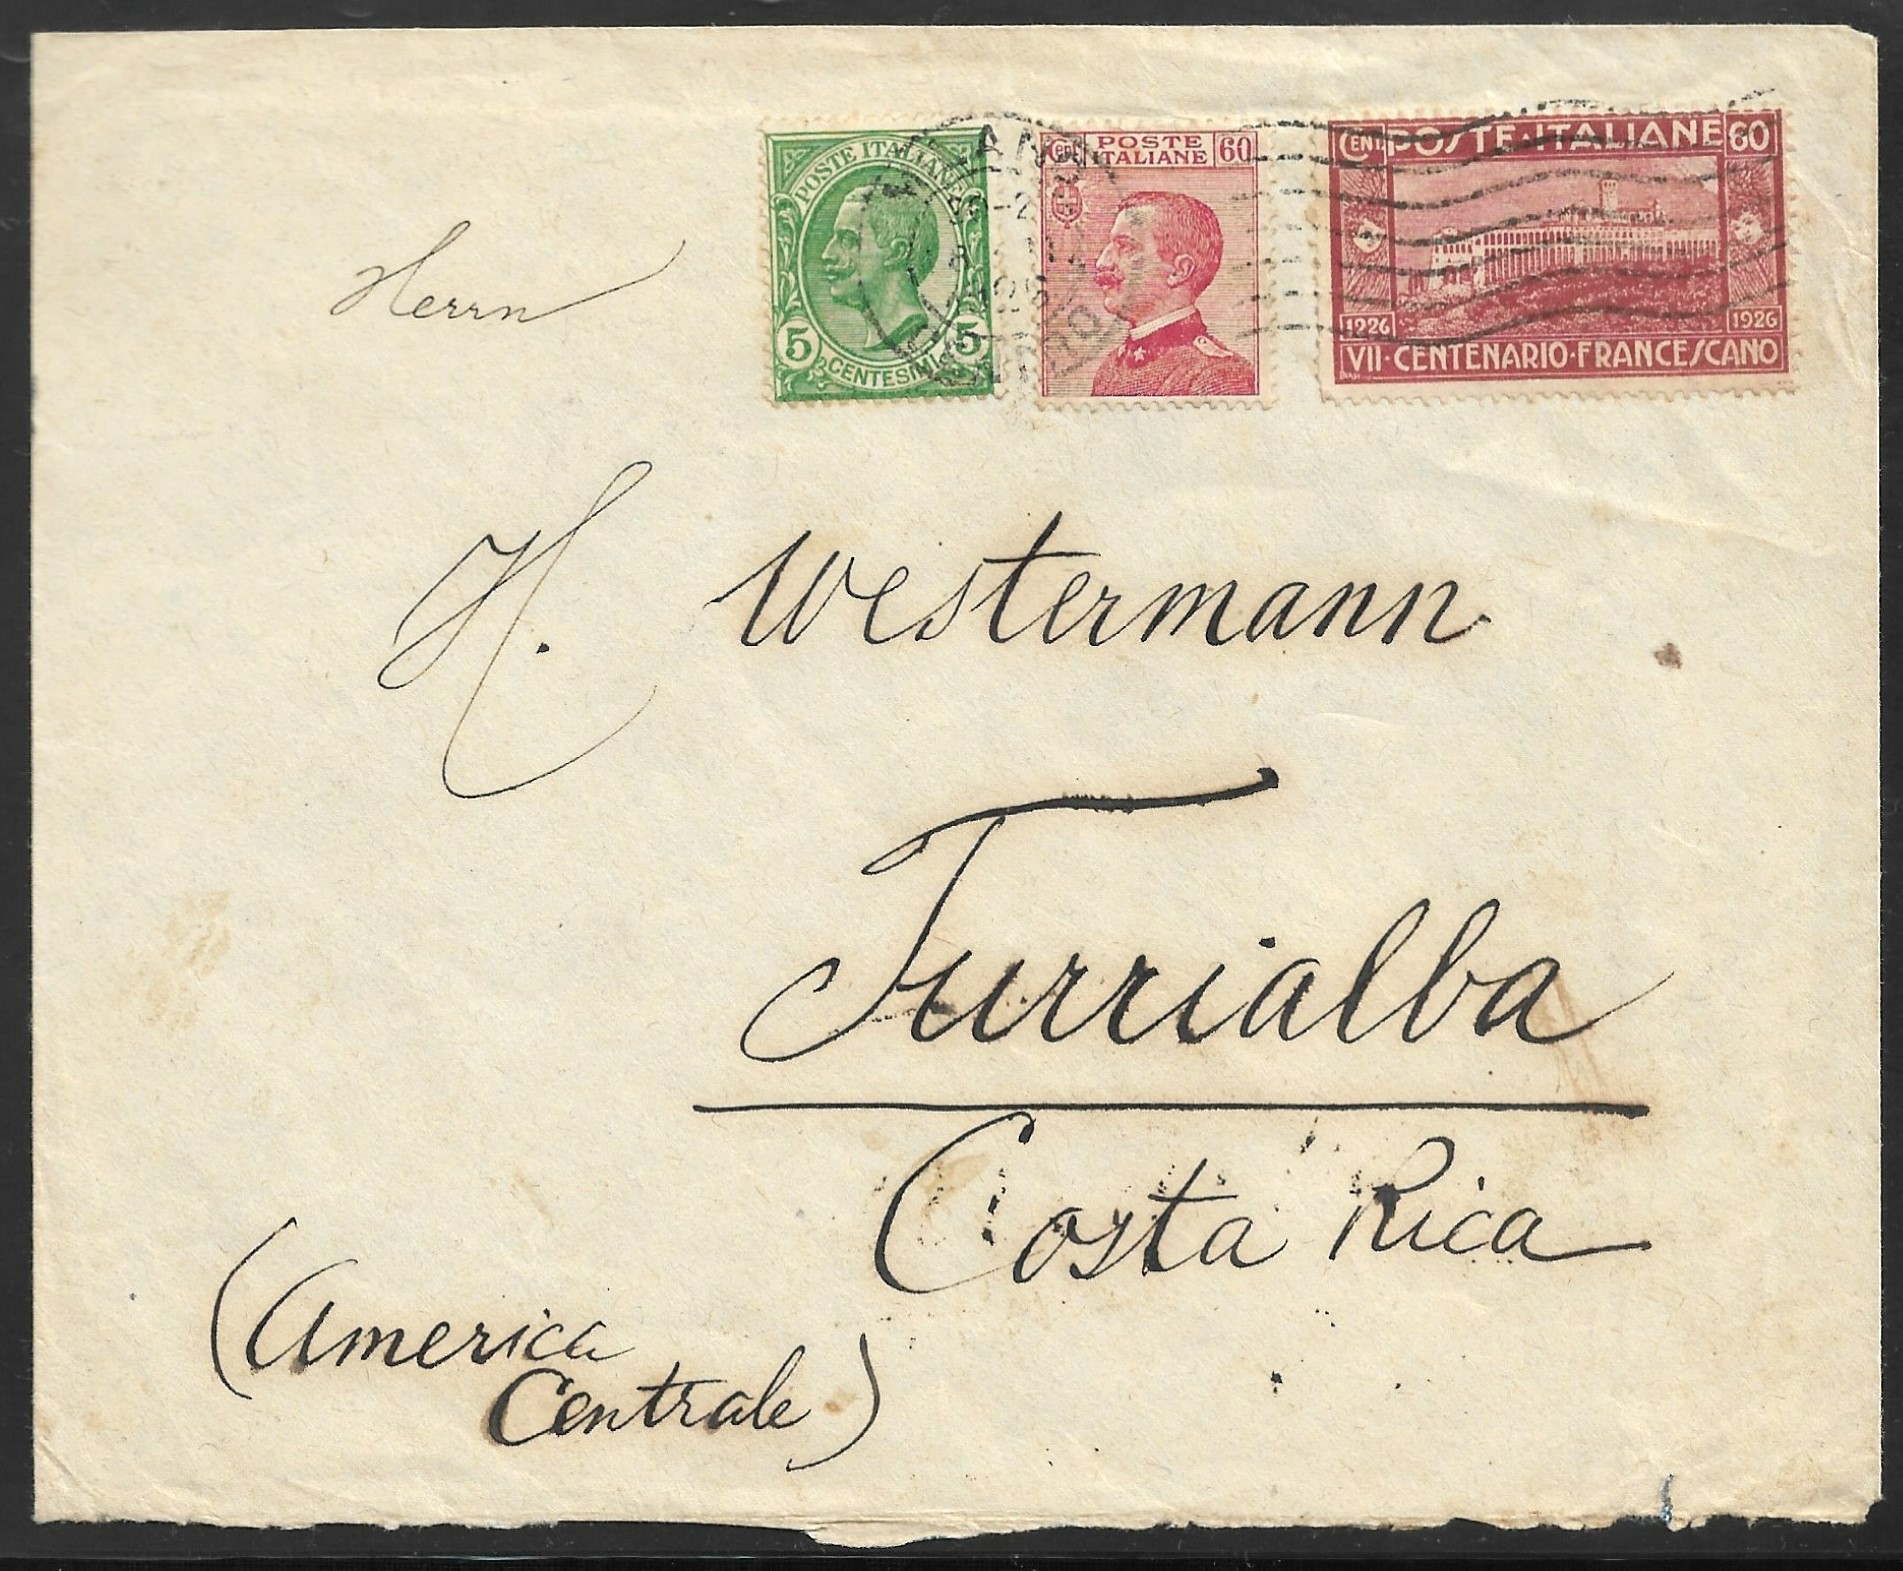 POSTE ITALIANE
5 5
CENTESIMI
Cent POSTE 60
ITALIANE
CENT. POSTE·ITALIANE 60
1226 1926
VII·CENTENARIO·FRANCESCANO
Herrn
H. Westermann
Turrialba
Costa Rica
(America
Centrale)